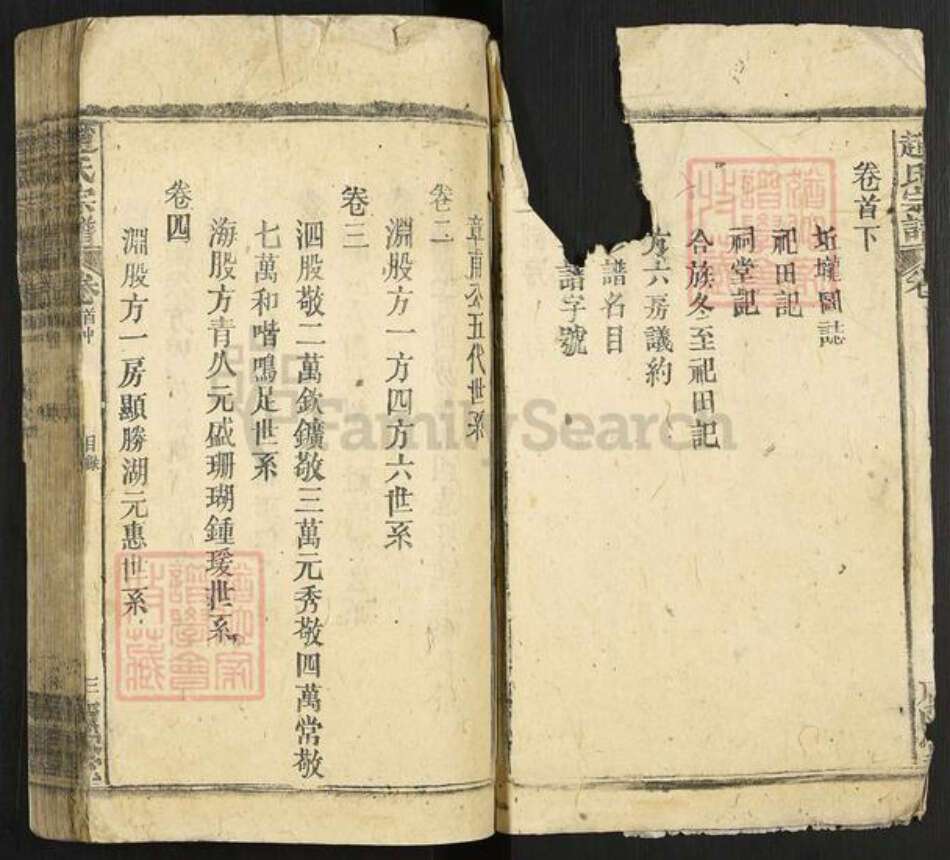 趙氏宗譜
卷首下
坵壠圖誌
祀田記
祠堂記
合族冬至祀田記
六房議約
譜名目
譜字號
章甫公五代世系
卷二
淵股方一方四方六世系
卷三
泗股敬二萬欽鑛敬三萬元秀敬四萬常敬
七萬和喈鳴足世系
海股方青久元盛珊瑚鍾瑗世系
卷四
淵股方一房顯勝湖元惠世系
趙氏宗譜
卷首中
目錄
三
FamilySearch